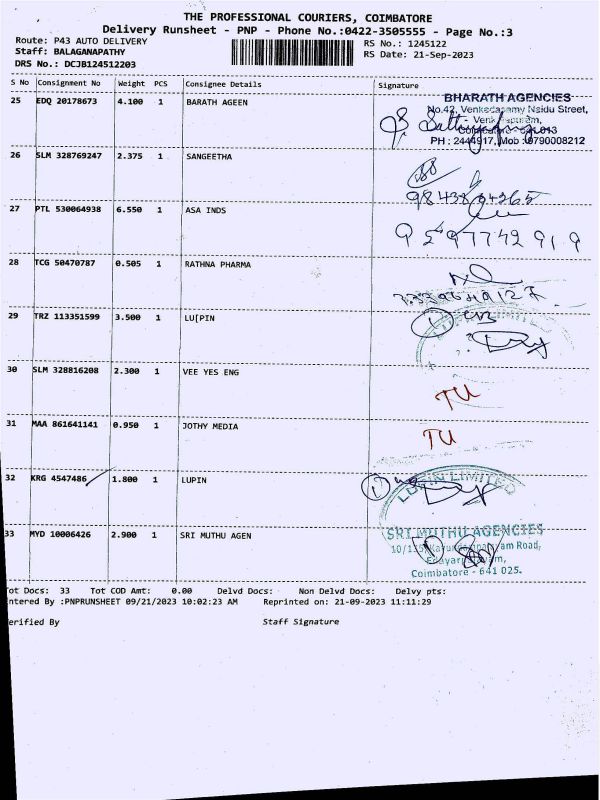 THE PROFESSIONAL COURIERS, COIMBATORE
Delivery Runsheet - PNP - Phone No.:0422-3505555 - Page No.:3
Route: P43 AUTO DELIVERY
RS No.: 1245122
Staff: BALAGANAPATHY
RS Date: 21-Sep-2023
DRS No.: DCJB124512203
S No Consignment No Weight PCS Consignee Details Signature
25 EDQ 20178673 4.100 1 BARATH AGEEN
BHARATH AGENCIES
No.42, Venkadasamy Naidu Street,
PH : 2444917, Mob : 9790008212
26 SLM 328769247 2.375 1 SANGEETHA
27 PTL 530064938 6.550 1 ASA INDS
9597742919
28 TCG 50470787 0.505 1 RATHNA PHARMA
29 TRZ 113351599 3.500 1 LU[PIN
30 SLM 328816208 2.300 1 VEE YES ENG
TU
31 MAA 861641141 0.950 1 JOTHY MEDIA
TU
32 KRG 4547486 1.800 1 LUPIN
LUPIN LIMITED
33 MYD 10006426 2.900 1 SRI MUTHU AGEN
SRI MUTHU AGENCIES
Coimbatore - 641 025.
Tot Docs: 33 Tot COD Amt: 0.00 Delvd Docs: Non Delvd Docs: Delvy pts:
ntered By :PNPRUNSHEET 09/21/2023 10:02:23 AM Reprinted on: 21-09-2023 11:11:29
erified By Staff Signature